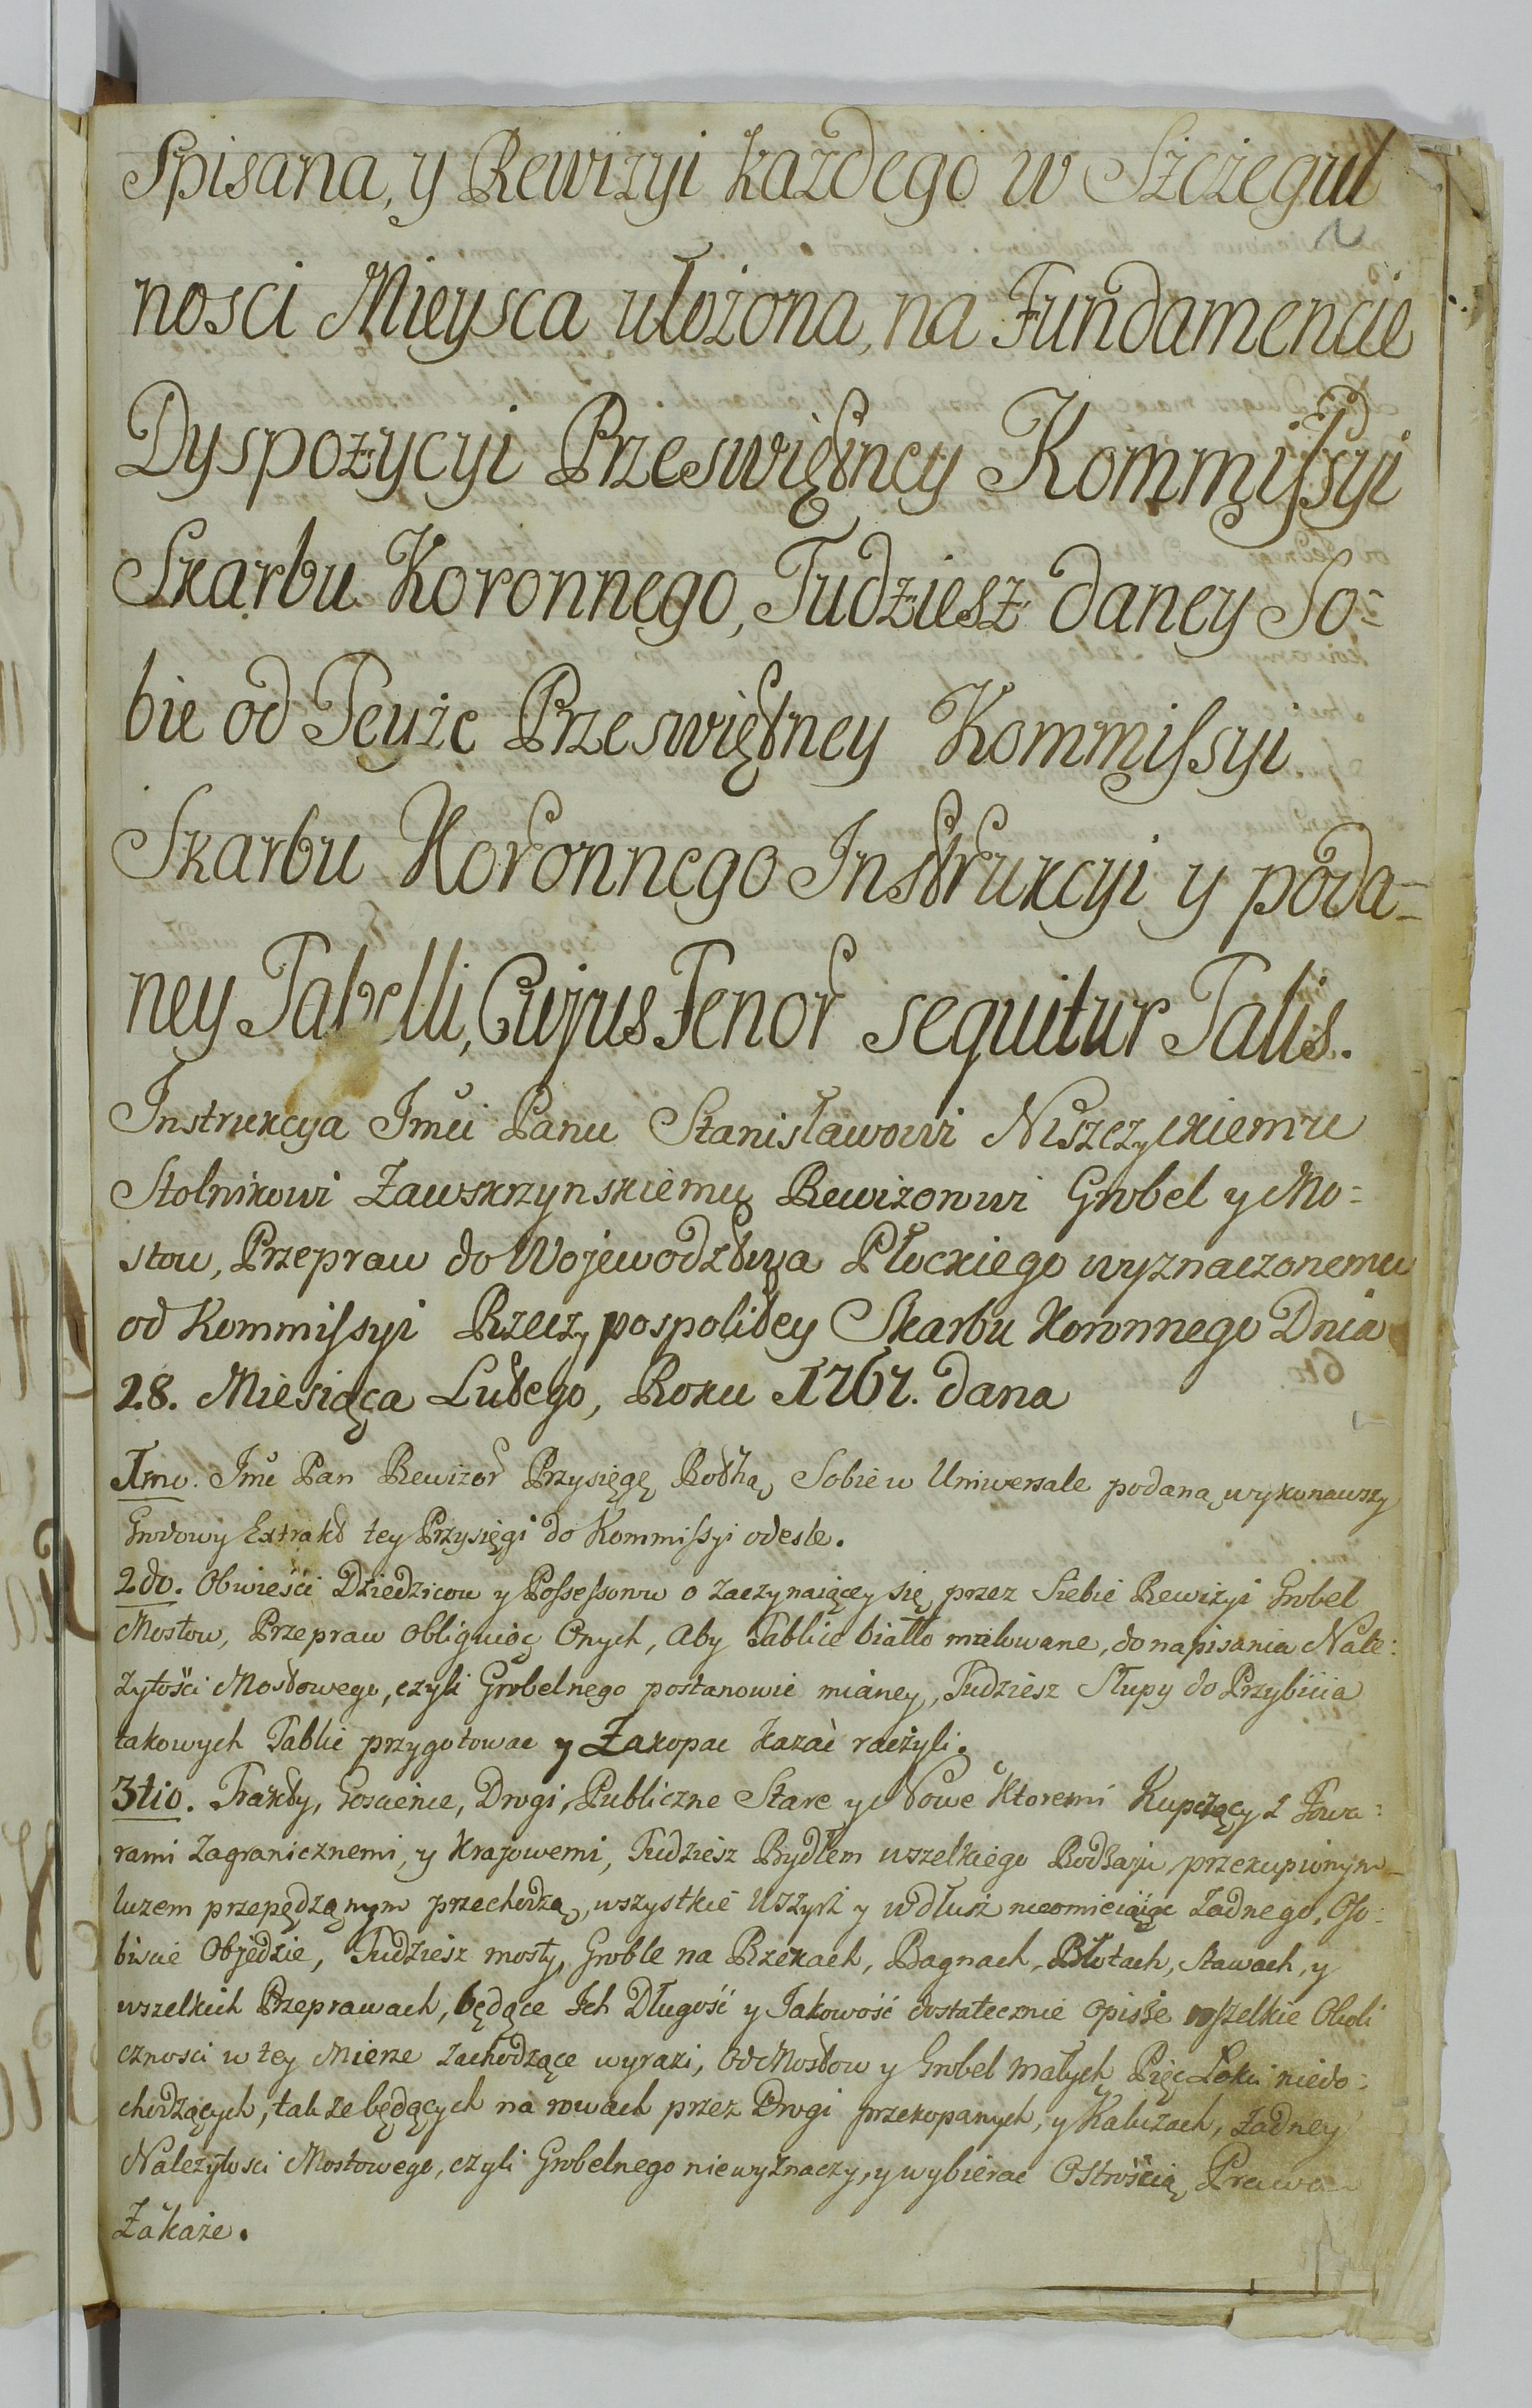 Spisana, y Rewizyi każdego w Szczegul
nosci Mieysca ułożona, na Fundamencie
Dyspozycyi Przeswiętney Kommissyi
Skarbu Koronnego, Tudziesz daney So=
bie od Teyże Przeswiętney Kommissyi
Skarbu Koronnego Instrukcyi y poda=
ney Tabelli, Cujus Tenor sequitur Talis.
Instrukcya Jmci Panu Stanisławowi Niszczyckiemu
Stolnikowi Zawskrzynskiemu Rewizorowi Grobel y Mo=
stow, Przepraw do Wojewodztwa Płockiego wyznaczonemu
od Kommissyi Rzeczypospolitey Skarbu Koronnego Dnia
28. Miesiąca Lutego, Roku 1767. dana
1mo. Jmć Pan Rewizor Przysięgę Rothą Sobie w Uniwersale podaną wykonawszy
Grodowy Extrakt tey Przysięgi do Kommissyi odesle.
2do. Obwieści Dziedzicow y Possessorow o zaczynaiącey się przez Siebie Rewizyi Grobel
Mostow, Przepraw obliguiąc Onych, aby Tablice biało malowane, do napisania Nale:
żytości Mostowego, czyli Grobelnego postanowić mianey, Tudziesz Słupy do Przybicia
takowych Tablic przygotować y Zakopać kazać raczyli.
3tio. Trakty, Goscience, Drogi, Publiczne Stare y Nowe ktoremi Kupczący z Towa:
rami Zagranicznemi, y Krajowemi, Tudziesz Bydłem wszelkiego Rodzaju przekupionym
luzem przepędzanym przechodzą, wszystkie Wszyrż y wdłuż nieomieiaiąc Żadnego, Oso:
biscie Objedzie, Tudziesz mosty, Groble na Rzekach, Bagnach, Błotach, Stawach, y
wszelkich Przeprawach, będące Jch Długość y Jakowość dostatecznie opisze wszelkie Okoli
cznosci w tey Mierze zachodzące wyrazi, Od Mostow y Grobel małych Pięć Łokci niedo:
chodzących, tak że będących na rowach przez Drogi przekopanych, y Kałużach, Żadney
Należytosci Mostowego, czyli Grobelnego niewyznaczy, y wybierac Ostrością Prawa
Zakaże.